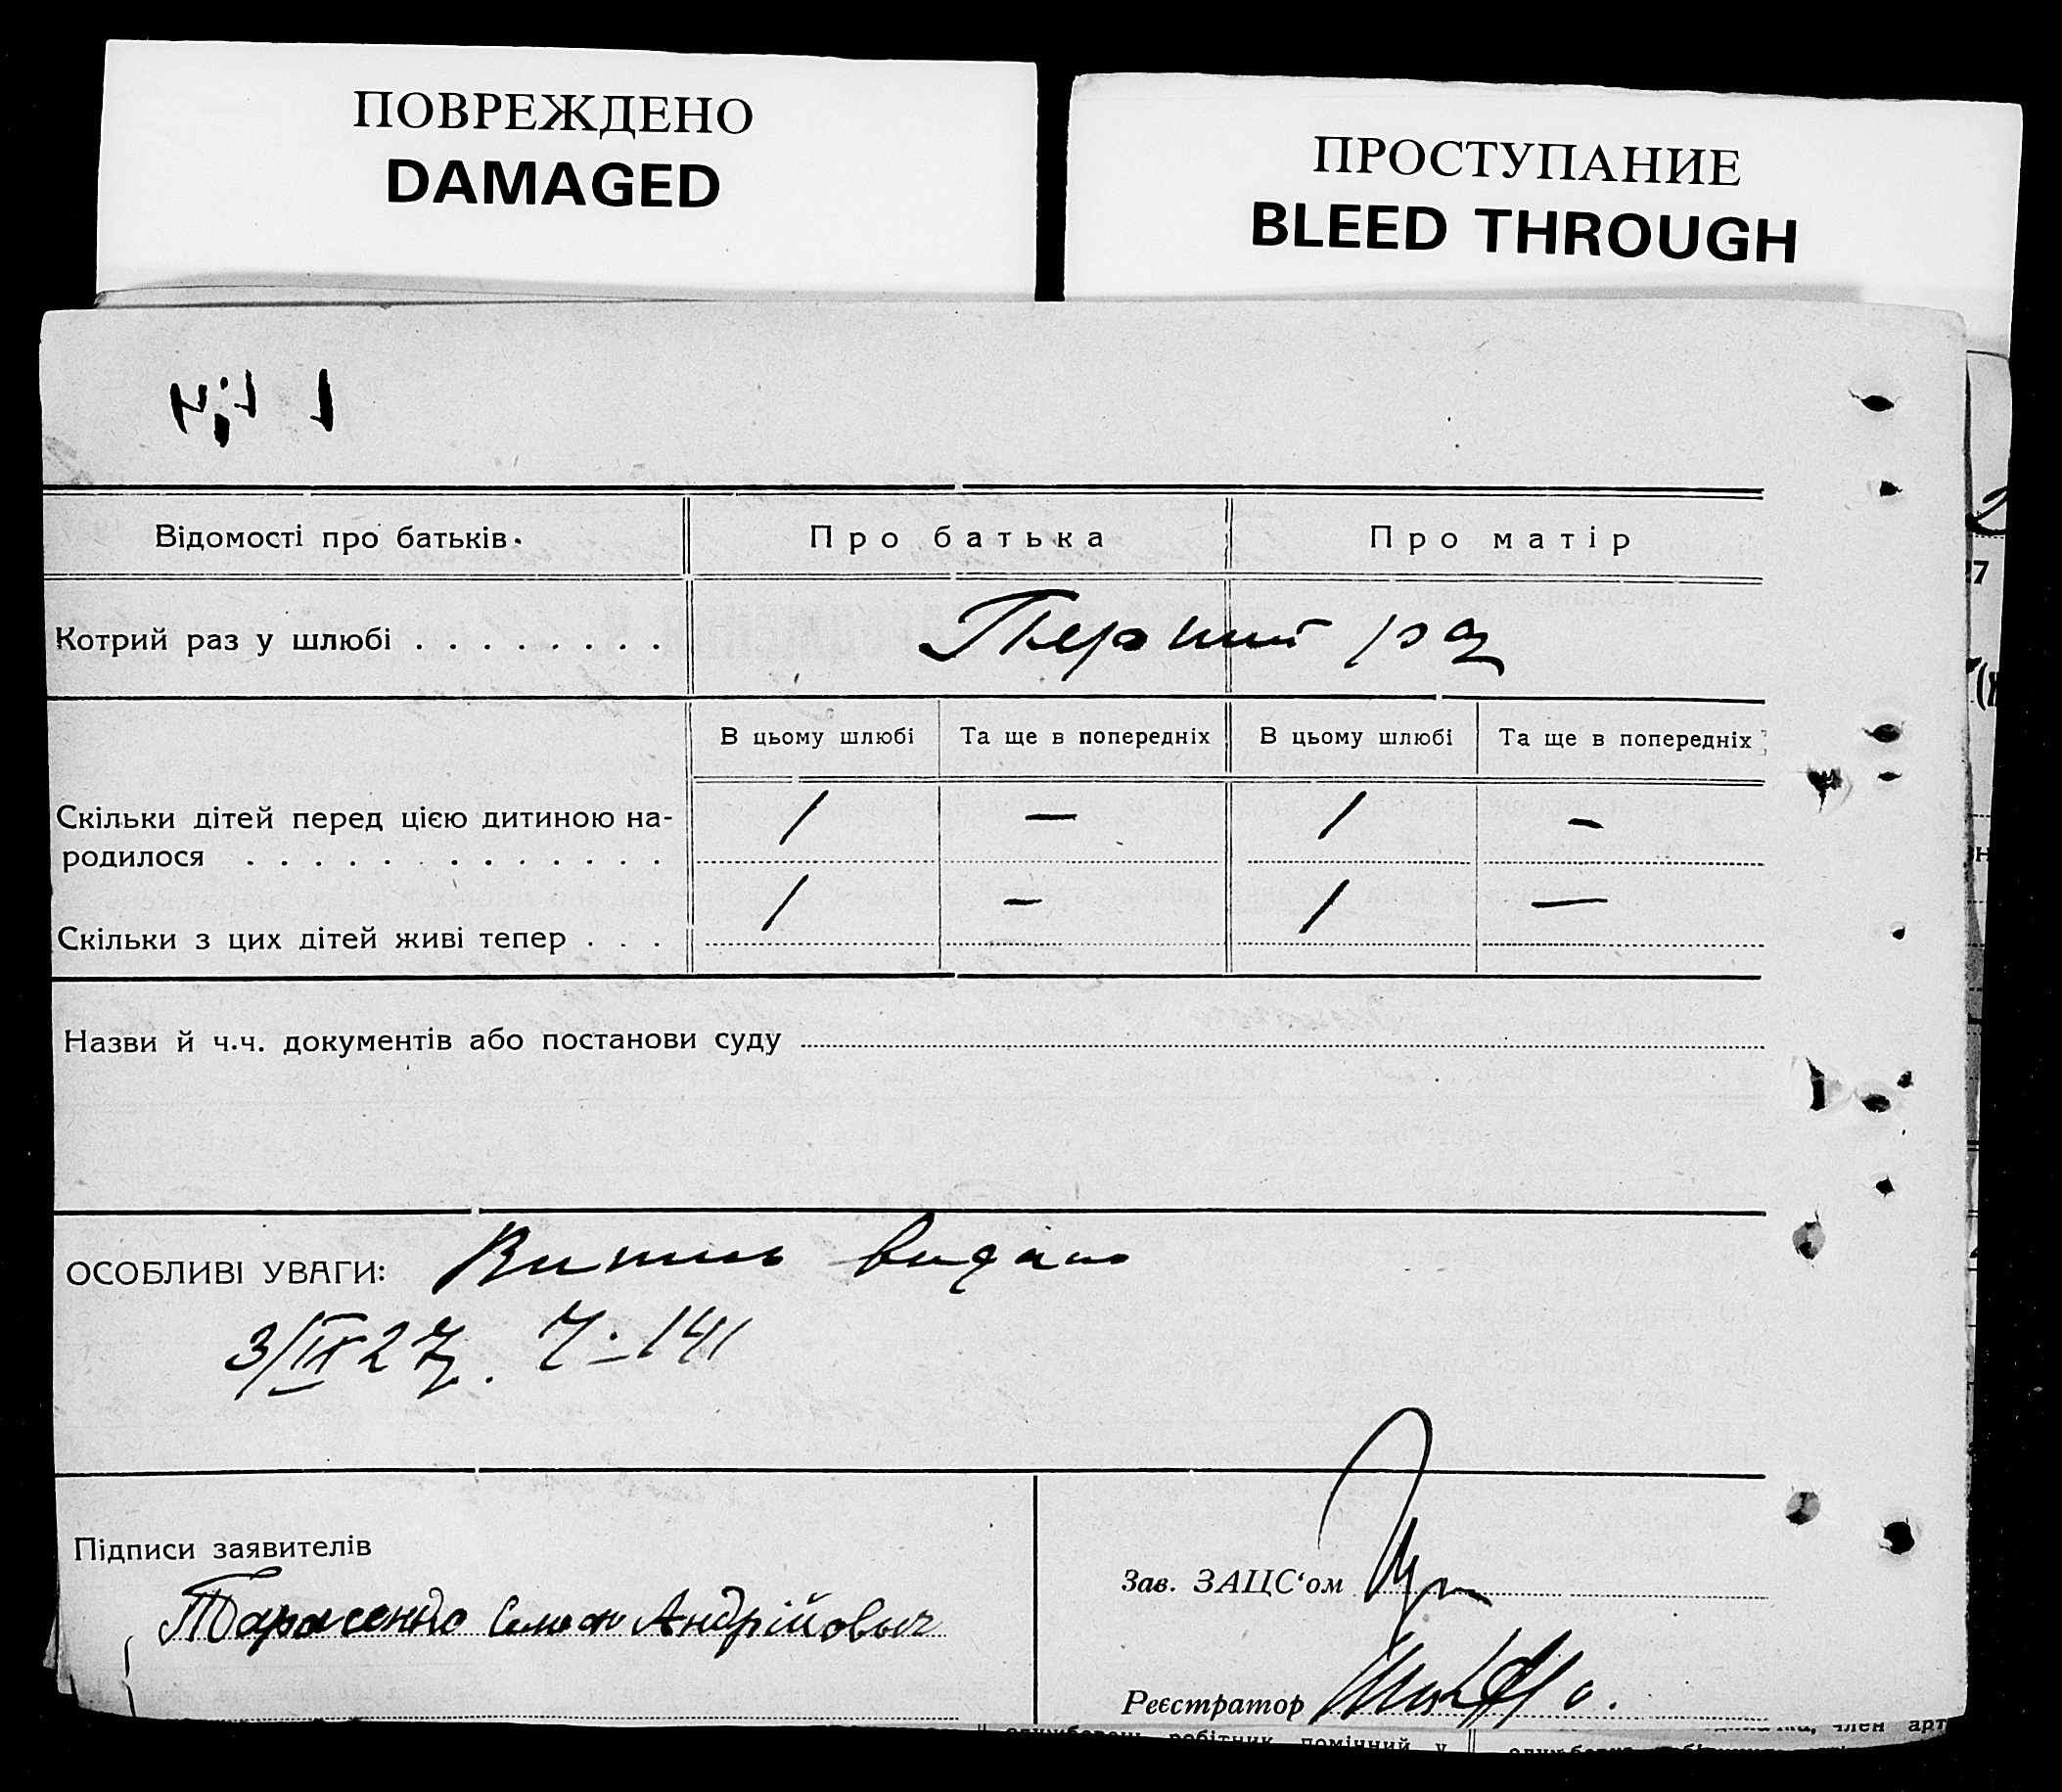 ПОВРЕЖДЕНО
DAMAGED
ПРОСТУПАНИЕ
BLEED THROUGH
Відомості про батьків.
Про батька
Про матір
Котрий раз у шлюбі . . . . . . . .
Перший раз
В цьому шлюбі
Та ще в попередніх
В цьому шлюбі
Та ще в попередніх
Скільки дітей перед цією дитиною на-
родилося . . . . . . . . . . . . .
1 — 1 —
Скільки з цих дітей живі тепер . . .
1 — 1 —
Назви й ч.ч. документів або постанови суду
ОСОБЛИВІ УВАГИ: Витяг видано
3/IX 27 . 141
Підписи заявителів
Тарасенко Семен Андрійович
Зав. ЗАЦС‘ом
Реєстратор
робітник помічний у
член арт